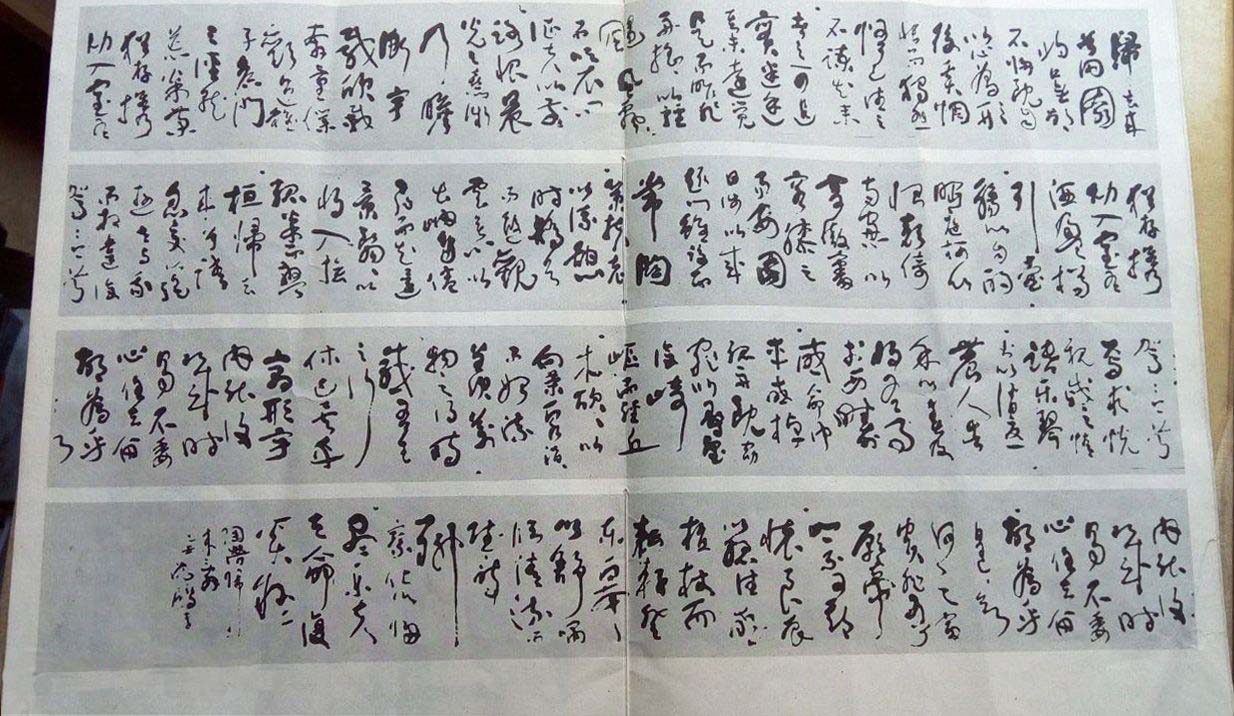 歸去來
兮田園
將蕪胡
不歸既自
以心為形
役奚惆
悵而獨悲
悟已往之
不諫知來
者之可追
實迷途
其未遠覺
今是而昨非
舟搖搖以輕
颺風飄飄
而吹衣問
征夫以前
路恨晨
光之熹微
乃瞻
衡宇
載欣載
奔童僕
歡迎稚
子候門
三徑就
荒松菊
猶存攜
幼入室有
猶存攜
幼入室有
酒盈樽
引壺
觴以自酌
眄庭柯以
怡顏倚
南窗以
寄傲審
容膝之
易安園
日涉以成
趣門雖設而
常關
策扶老
以流憩
時矯首
而遐觀
雲無心以
出岫鳥倦
飛而知還
景翳翳以
將入撫
孤松而盤
桓歸去
來兮請
息交以絕
遊世與我
而相違復
駕言兮
駕言兮
焉求悅
親戚之情
話樂琴
書以消憂
農人告
余以春及
將有事
於西疇
或命巾
車或棹
孤舟既窈
窕以尋壑
亦崎
嶇而經丘
木欣欣以
向榮泉涓
涓而始流
善萬
物之得時
感吾生
之行
休已矣乎
寓形宇
內能復
幾時
曷不委
心任去留
胡為乎
內能復
幾時
曷不委
心任去留
胡為乎
遑遑欲
何之富
貴非吾
願帝鄉
不可期
懷良辰
以孤往或
植杖而
耘耔登
東皋
以舒嘯
臨清流而
賦詩
聊
乘化以歸
盡樂夫
天命復
奚疑